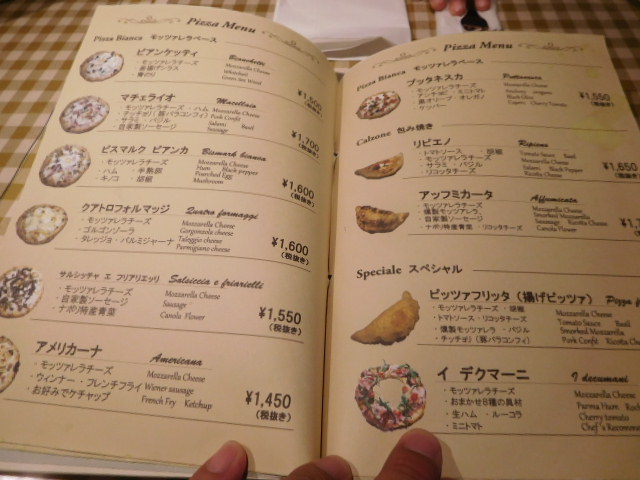 Pizza Menu
Pizza Bianca モッツァレラベース
ビアンケッティ Bianchetti
・モッツァレラチーズ Mozzarella Cheese
・釜揚げシラス Whitebait
・青のり Green Sea Weed
¥1,500
(税抜き)
マチェライオ Macellaio
・モッツァレラチーズ ・ハム Mozzarella Cheese
・チッチョリ(豚バラコンフィ) Pork Confit
・サラミ ・バジル Salami Basil
・自家製ソーセージ Sausage
¥1,700
(税抜き)
ビスマルク ビアンカ Bismark bianca
・モッツァレラチーズ Mozzarella Cheese
・ハム ・半熟卵 Ham Black pepper
・キノコ ・胡椒 Poached Egg
Mushroom
¥1,600
(税抜き)
クアトロフォルマッジ Quatro formaggi
・モッツァレラチーズ Mozzarella Cheese
・ゴルゴンゾーラ Gorgonzola cheese
・タレッジョ ・パルミジャーナ Taleggio cheese
Parmigiano cheese
¥1,600
(税抜き)
サルシッチャ エ フリアリエッリ Salsiccia e friarielli
・モッツァレラチーズ Mozzarella Cheese
・自家製ソーセージ Sausage
・ナポリ特産青菜 Canola Flower
¥1,550
(税抜き)
アメリカーナ Americana
・モッツァレラチーズ Mozzarella Cheese
・ウィンナー ・フレンチフライ Wiener sausage
・お好みでケチャップ French Fry Ketchup
¥1,450
(税抜き)
Pizza Menu
Pizza Bianca モッツァレラベース
プッタネスカ Puttanesca
・モッツァレラチーズ Mozzarella Cheese
・アンチョビ ・ミニトマト Anchovy oregano
・黒オリーブ ・オレガノ Black Olive
・ケッパー Capers Cherry Tomato
¥1,550
(税抜き)
Calzone 包み焼き
リピエノ Ripieno
・トマトソース ・胡椒 Tomato Sauce Basil
・モッツァレラチーズ Mozzarella Cheese
・サラミ ・バジル Salami Black Pepper
・リコッタチーズ Ricotta Cheese
¥1,650
(税抜き)
アッフミカータ Affumicata
・モッツァレラチーズ Mozzarella Cheese
・燻製モッツァレラ Smorked Mozzarella
・自家製ソーセージ Sausage Ricotta Cheese
・ナポリ特産青菜 ・リコッタチーズ Canola Flower
¥1,7
(税
Speciale スペシャル
ピッツァフリッタ (揚げピッツァ) Pizza
・モッツァレラチーズ ・胡椒 Mozzarella Cheese
・トマトソース ・リコッタチーズ Tomato Sauce Basil
・燻製モッツァレラ ・バジル Smorked Mozzarella
・チッチョリ (豚バラコンフィ) Pork Confit Ricotta Ch
イ デクマーニ I decumani
・モッツァレラチーズ Mozzarella Cheese
・おまかせ8種の具材 Parma Ham Rock
・生ハム ・ルーコラ Cherry tomato
・ミニトマト Chef's Recomme